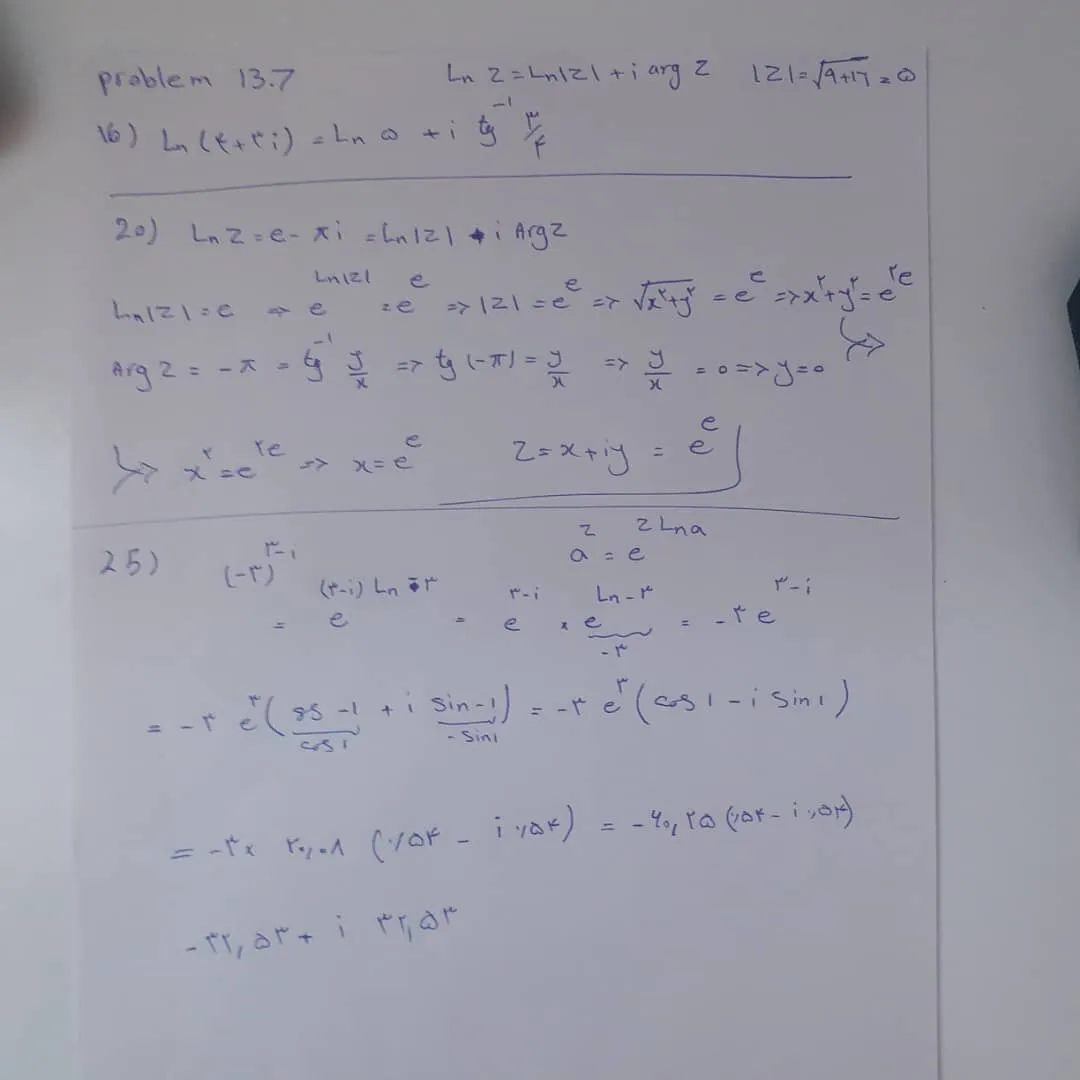 problem 13.7 Ln z = Ln|z| + i arg z |z| = √9+17 = ۵
16) Ln (۴+۳i) = Ln ۵ + i tg⁻¹ ۳/۴
20) Ln z = e - πi = Ln|z| + i Arg z
Ln|z| = e => e^Ln|z| = e^e => |z| = e^e => √x²+y² = e^e => x²+y² = e^۲e
Arg z = -π = tg⁻¹ y/x => tg (-π) = y/x => y/x = ۰ => y=۰
x² = e^۲e => x = e^e z = x+iy = e^e
25) (-۳)^۳-i a^z = e^z Ln a
= e^(۳-i) Ln -۳ = e^۳-i × e^Ln -۳ = -۳ e^۳-i
-۳
= -۳ e^۳ (cos -1 + i sin -1) = -۳ e^۳ (cos 1 - i sin 1)
cos 1 - sin 1
= -۳ × ۲۰,۰۸ (۰,۵۴ - i ۰,۵۴) = -۶۰,۲۵ (۰,۵۴ - i ۰,۵۴)
-۳۲,۵۳ + i ۳۲,۵۳